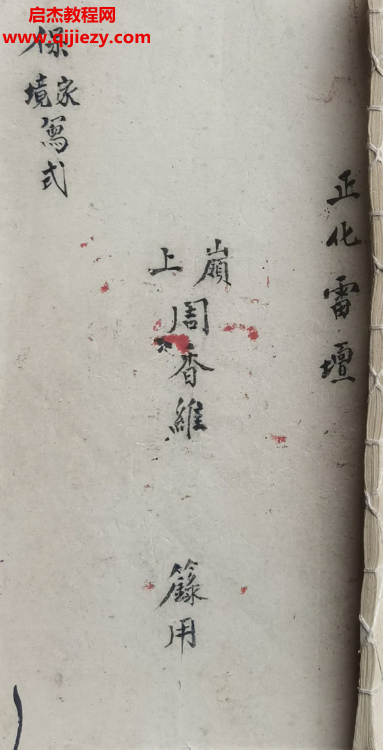 启杰教程网
www.qijiezy.com
正化雷壇
嶺上周香維
籙用
保家境寫式